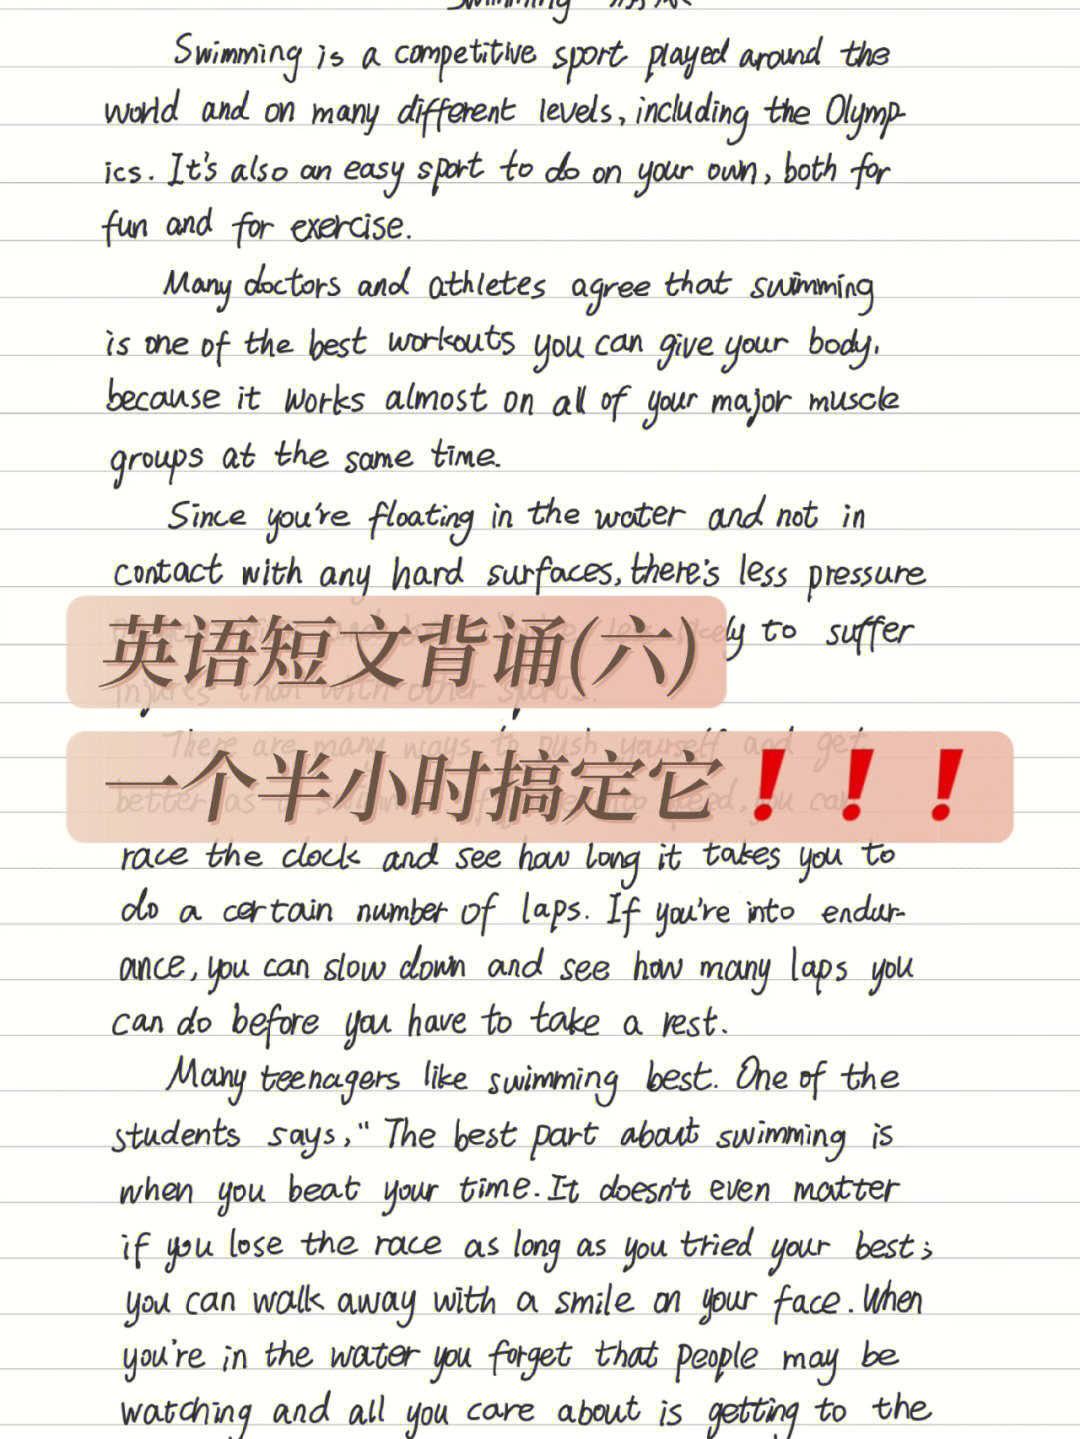 Swimming
Swimming is a competitive sport played around the
world and on many different levels, including the Olymp-
ics. It's also an easy sport to do on your own, both for
fun and for exercise.
Many doctors and athletes agree that swimming
is one of the best workouts you can give your body,
because it works almost on all of your major muscle
groups at the same time.
Since you're floating in the water and not in
contact with any hard surfaces, there's less pressure
to suffer
英语短文背诵(六)
than with other
There are many ways to push yourself and get
一个半小时搞定它❗❗❗
better as a you can
race the clock and see how long it takes you to
do a certain number of laps. If you're into endur-
ance, you can slow down and see how many laps you
can do before you have to take a rest.
Many teenagers like swimming best. One of the
students says, "The best part about swimming is
when you beat your time. It doesn't even matter
if you lose the race as long as you tried your best;
you can walk away with a smile on your face. When
you're in the water you forget that people may be
watching and all you care about is getting to the